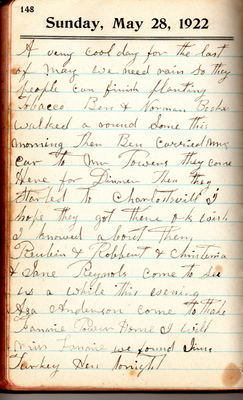 148
Sunday, May 28, 1922
A very cool day for the last
of May we need rain so they
people can finish planting
Tobacco Ben & Norman
walked a round Some this
morning Then Ben carried
car to Mr Powers they come
Here for Dinner Then they
Started to Charlottsvill I
hope they got there o-k wish
I knowed about them,
Reubin & Robbert & Christenia
& Jane Reynols come to see
us a while this evening
Aza Anderson come to take
Fannie Home I will
miss Fannie we found
Turkey Hen tonight